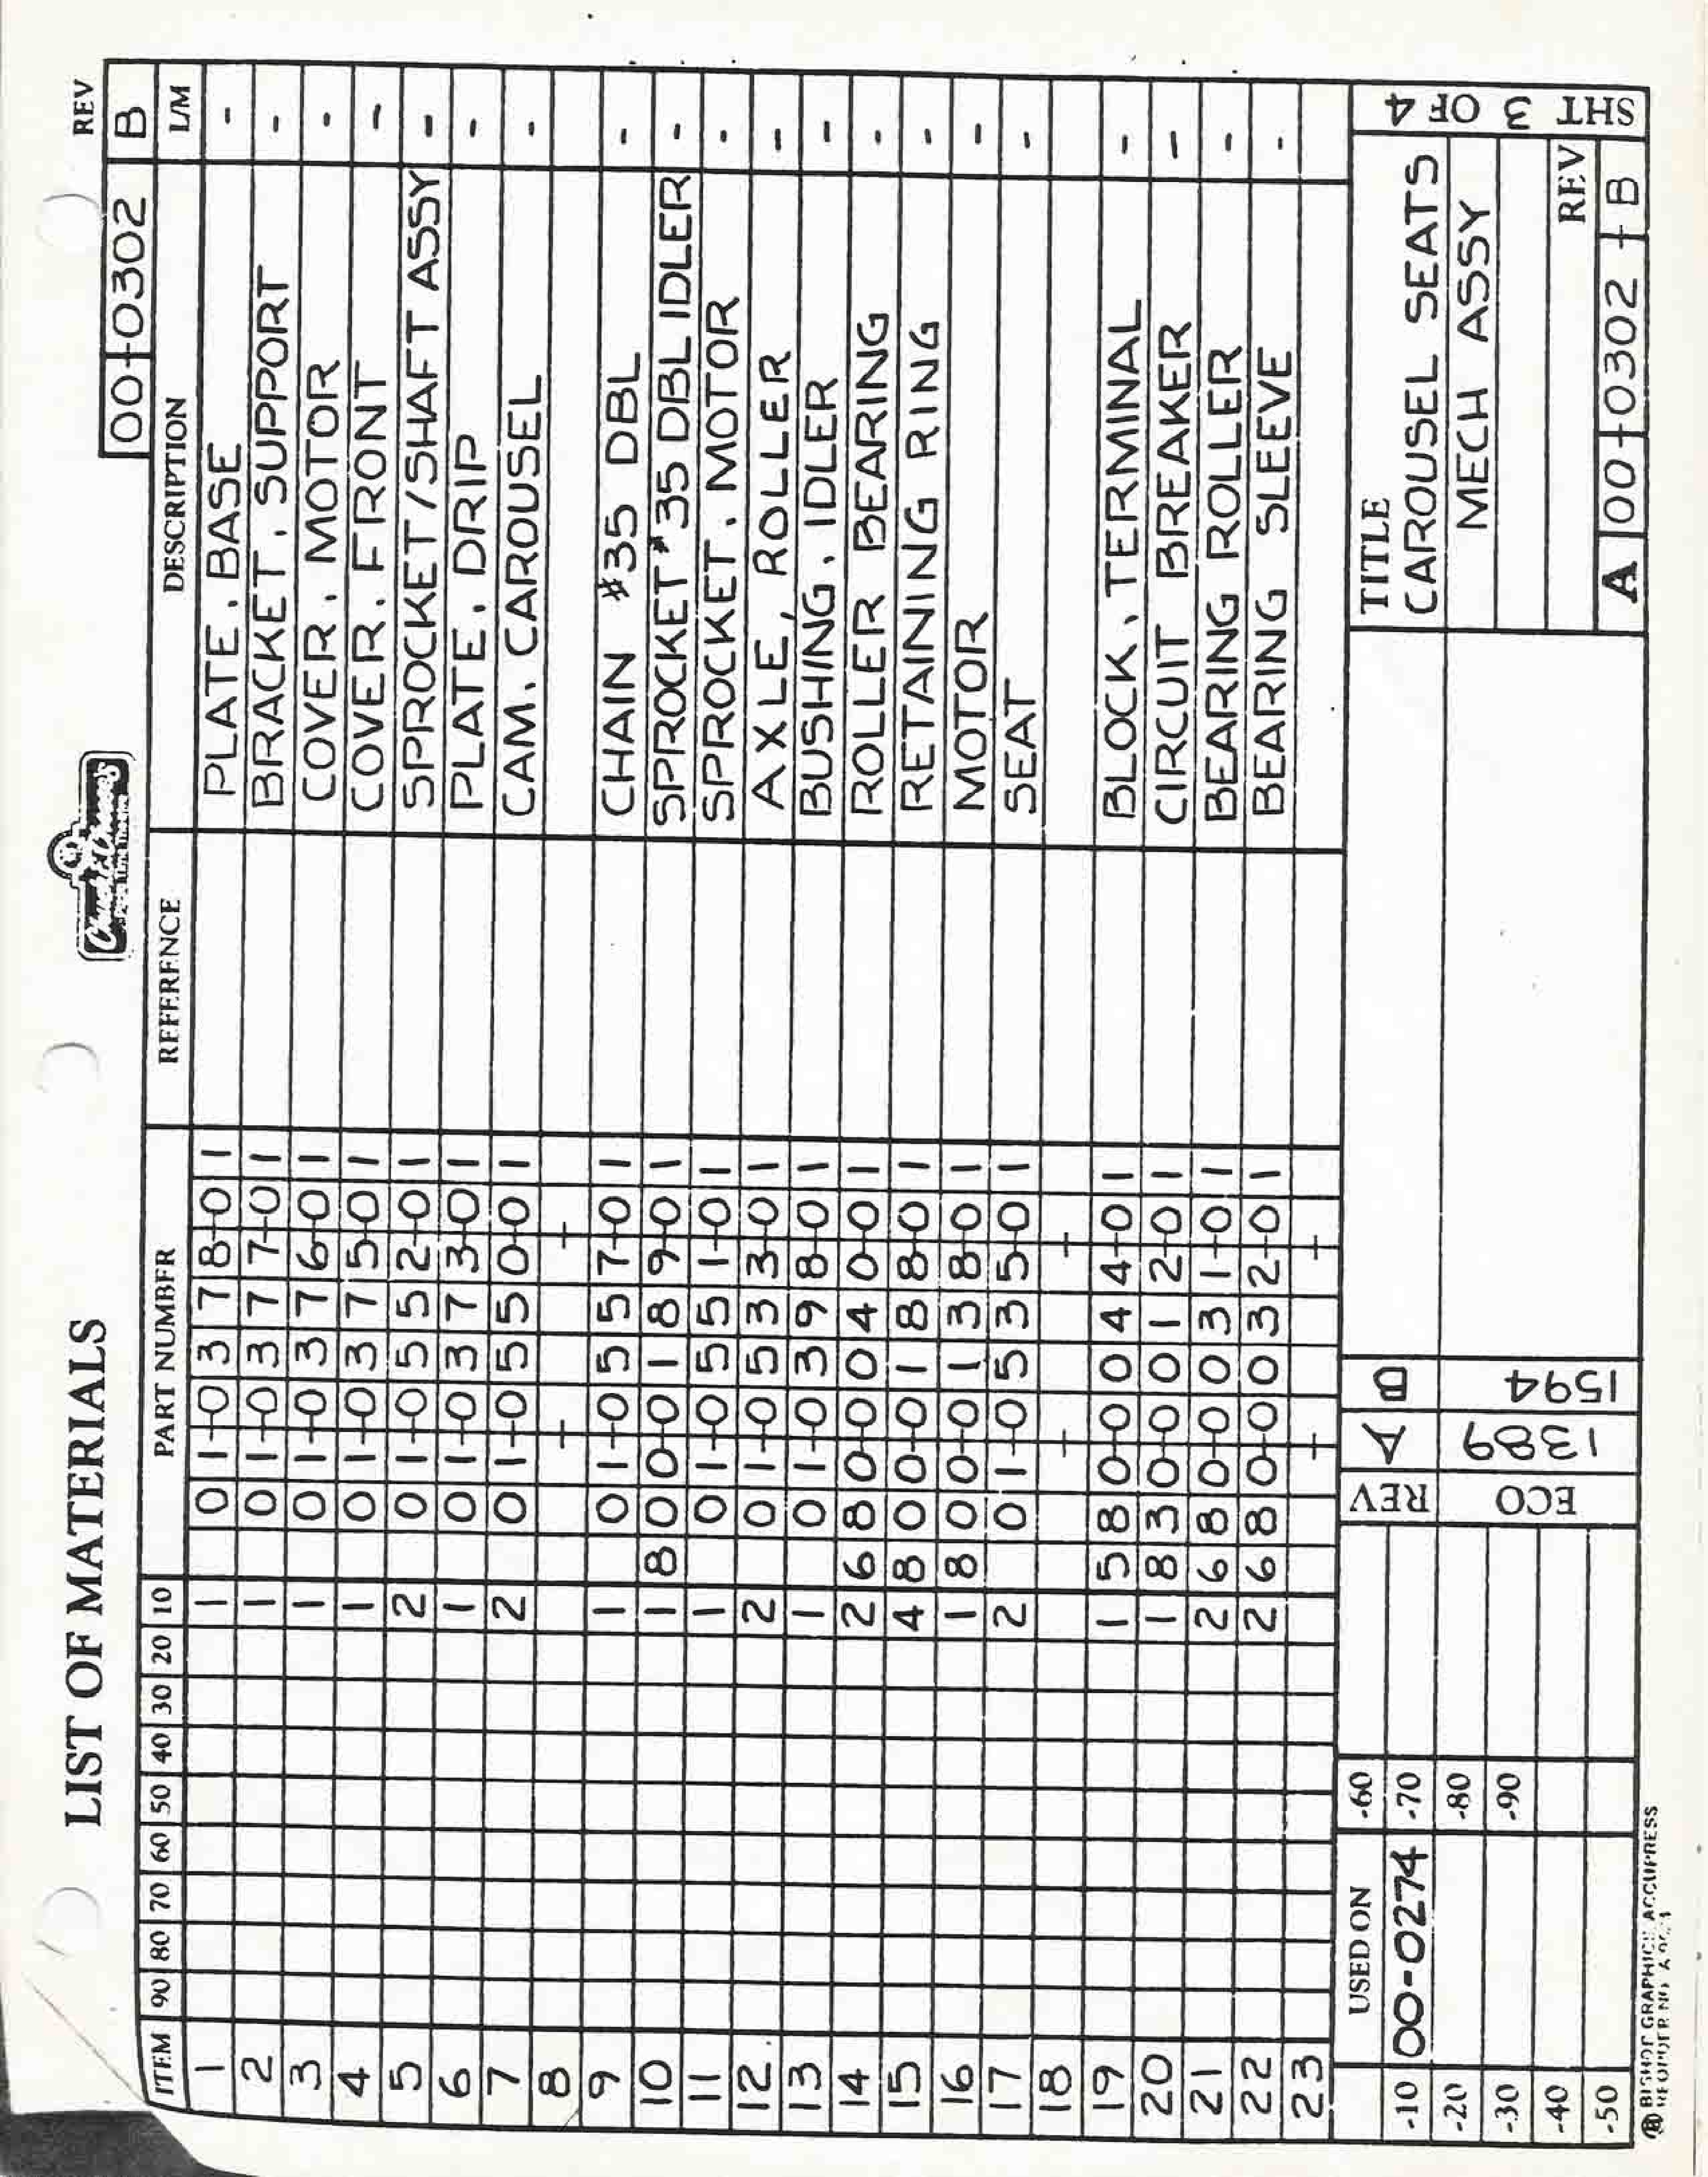 LIST OF MATERIALS
Chuck E. Cheese's
Pizza Time Theatre
REV
00-0302 B
ITEM 90 80 70 60 50 40 30 20 10 PART NUMBER REFERENCE DESCRIPTION L/M
1 1 01-03778-01 PLATE, BASE -
2 1 01-03777-01 BRACKET, SUPPORT -
3 1 01-03776-01 COVER, MOTOR -
4 1 01-03775-01 COVER, FRONT -
5 2 01-05552-01 SPROCKET/SHAFT ASSY -
6 1 01-03773-01 PLATE, DRIP -
7 2 01-05550-01 CAM, CAROUSEL -
8
9 1 01-05557-01 CHAIN #35 DBL -
10 1 800-01889-01 SPROCKET #35 DBL IDLER -
11 1 01-05551-01 SPROCKET, MOTOR -
12 2 01-05533-01 AXLE, ROLLER -
13 1 01-03998-01 BUSHING, IDLER -
14 2 680-00040-01 ROLLER BEARING -
15 4 800-01188-01 RETAINING RING -
16 1 800-01138-01 MOTOR -
17 2 01-05535-01 SEAT -
18
19 1 580-00044-01 BLOCK, TERMINAL -
20 1 830-00012-01 CIRCUIT BREAKER -
21 2 680-00031-01 BEARING ROLLER -
22 2 680-00032-01 BEARING SLEEVE -
23
USED ON
-10 00-0274
-20
-30
-40
-50
-60
-70
-80
-90
REV A B
ECO 1389 1594
TITLE
CAROUSEL SEATS
MECH ASSY
REV
A 00-0302 - B
SHT 3 OF 4
BISHOP GRAPHICS/ACCUPRESS
REORDER NO.